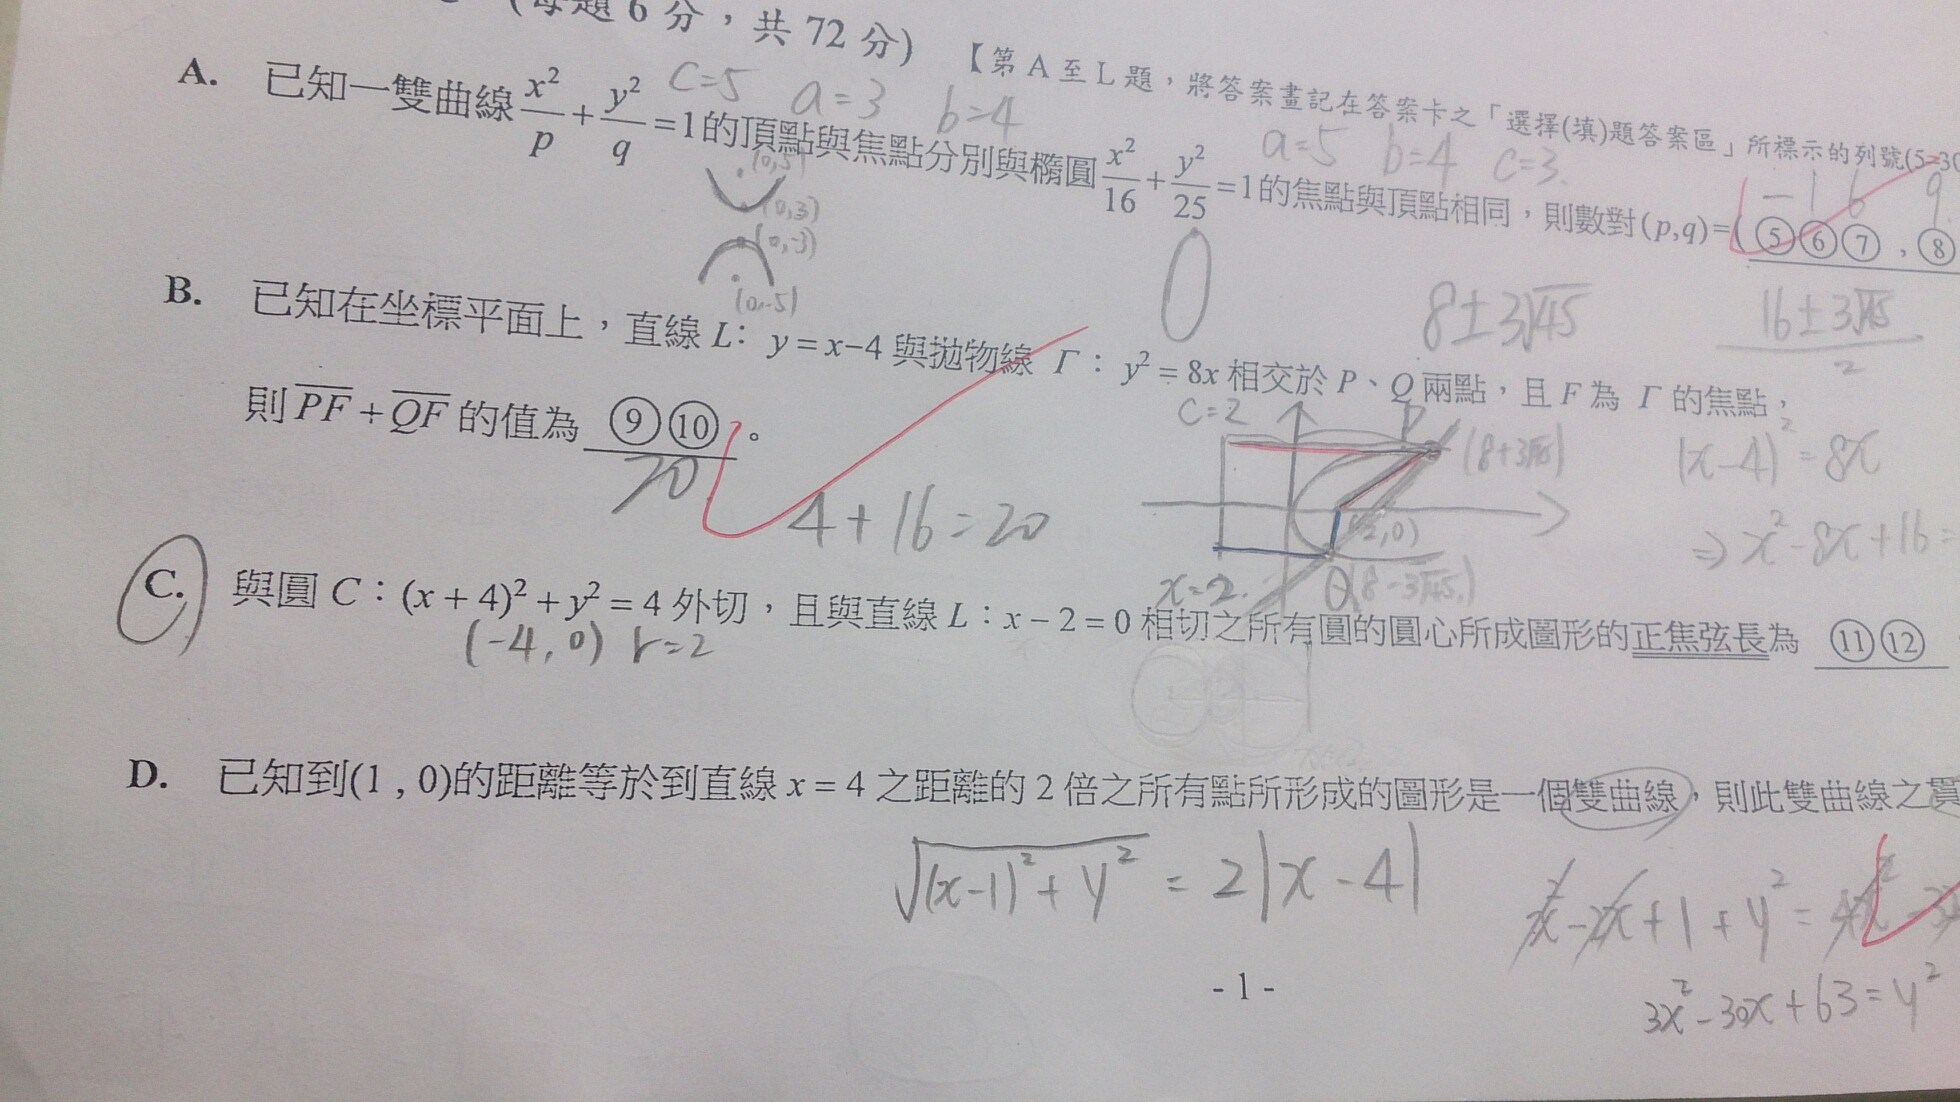 (每題 6 分，共 72 分)
【第 A 至 L 題，將答案畫記在答案卡之「選擇(填)題答案區」所標示的列號(5-30
A. 已知一雙曲線 x²/p + y²/q = 1 的頂點與焦點分別與橢圓 x²/16 + y²/25 = 1 的焦點與頂點相同，則數對 (p,q) = ( ⑤⑥⑦ , ⑧
c=5 a=3 b=4
a=5 b=4 c=3.
-16 9
(0,5)
(0,3)
(0,-3)
(0,-5)
0
8±3√45
16±3√45 / 2
B. 已知在坐標平面上，直線 L: y = x−4 與拋物線 Γ : y² = 8x 相交於 P、Q 兩點，且 F 為 Γ 的焦點，
則 PF + QF 的值為 ⑨⑩ 。
20
4+16=20
c=2
P
(2,0)
x=-2.
(x-4)² = 8x
⇒ x²-8x+16=
C. 與圓 C：(x + 4)² + y² = 4 外切，且與直線 L：x − 2 = 0 相切之所有圓的圓心所成圖形的正焦弦長為 ⑪⑫
(-4,0) r=2
D. 已知到(1 , 0)的距離等於到直線 x = 4 之距離的 2 倍之所有點所形成的圖形是一個雙曲線，則此雙曲線之貫
√(x-1)²+y² = 2|x-4|
x²-2x+1+y² = 4x²-3
3x²-30x+63=y²
- 1 -